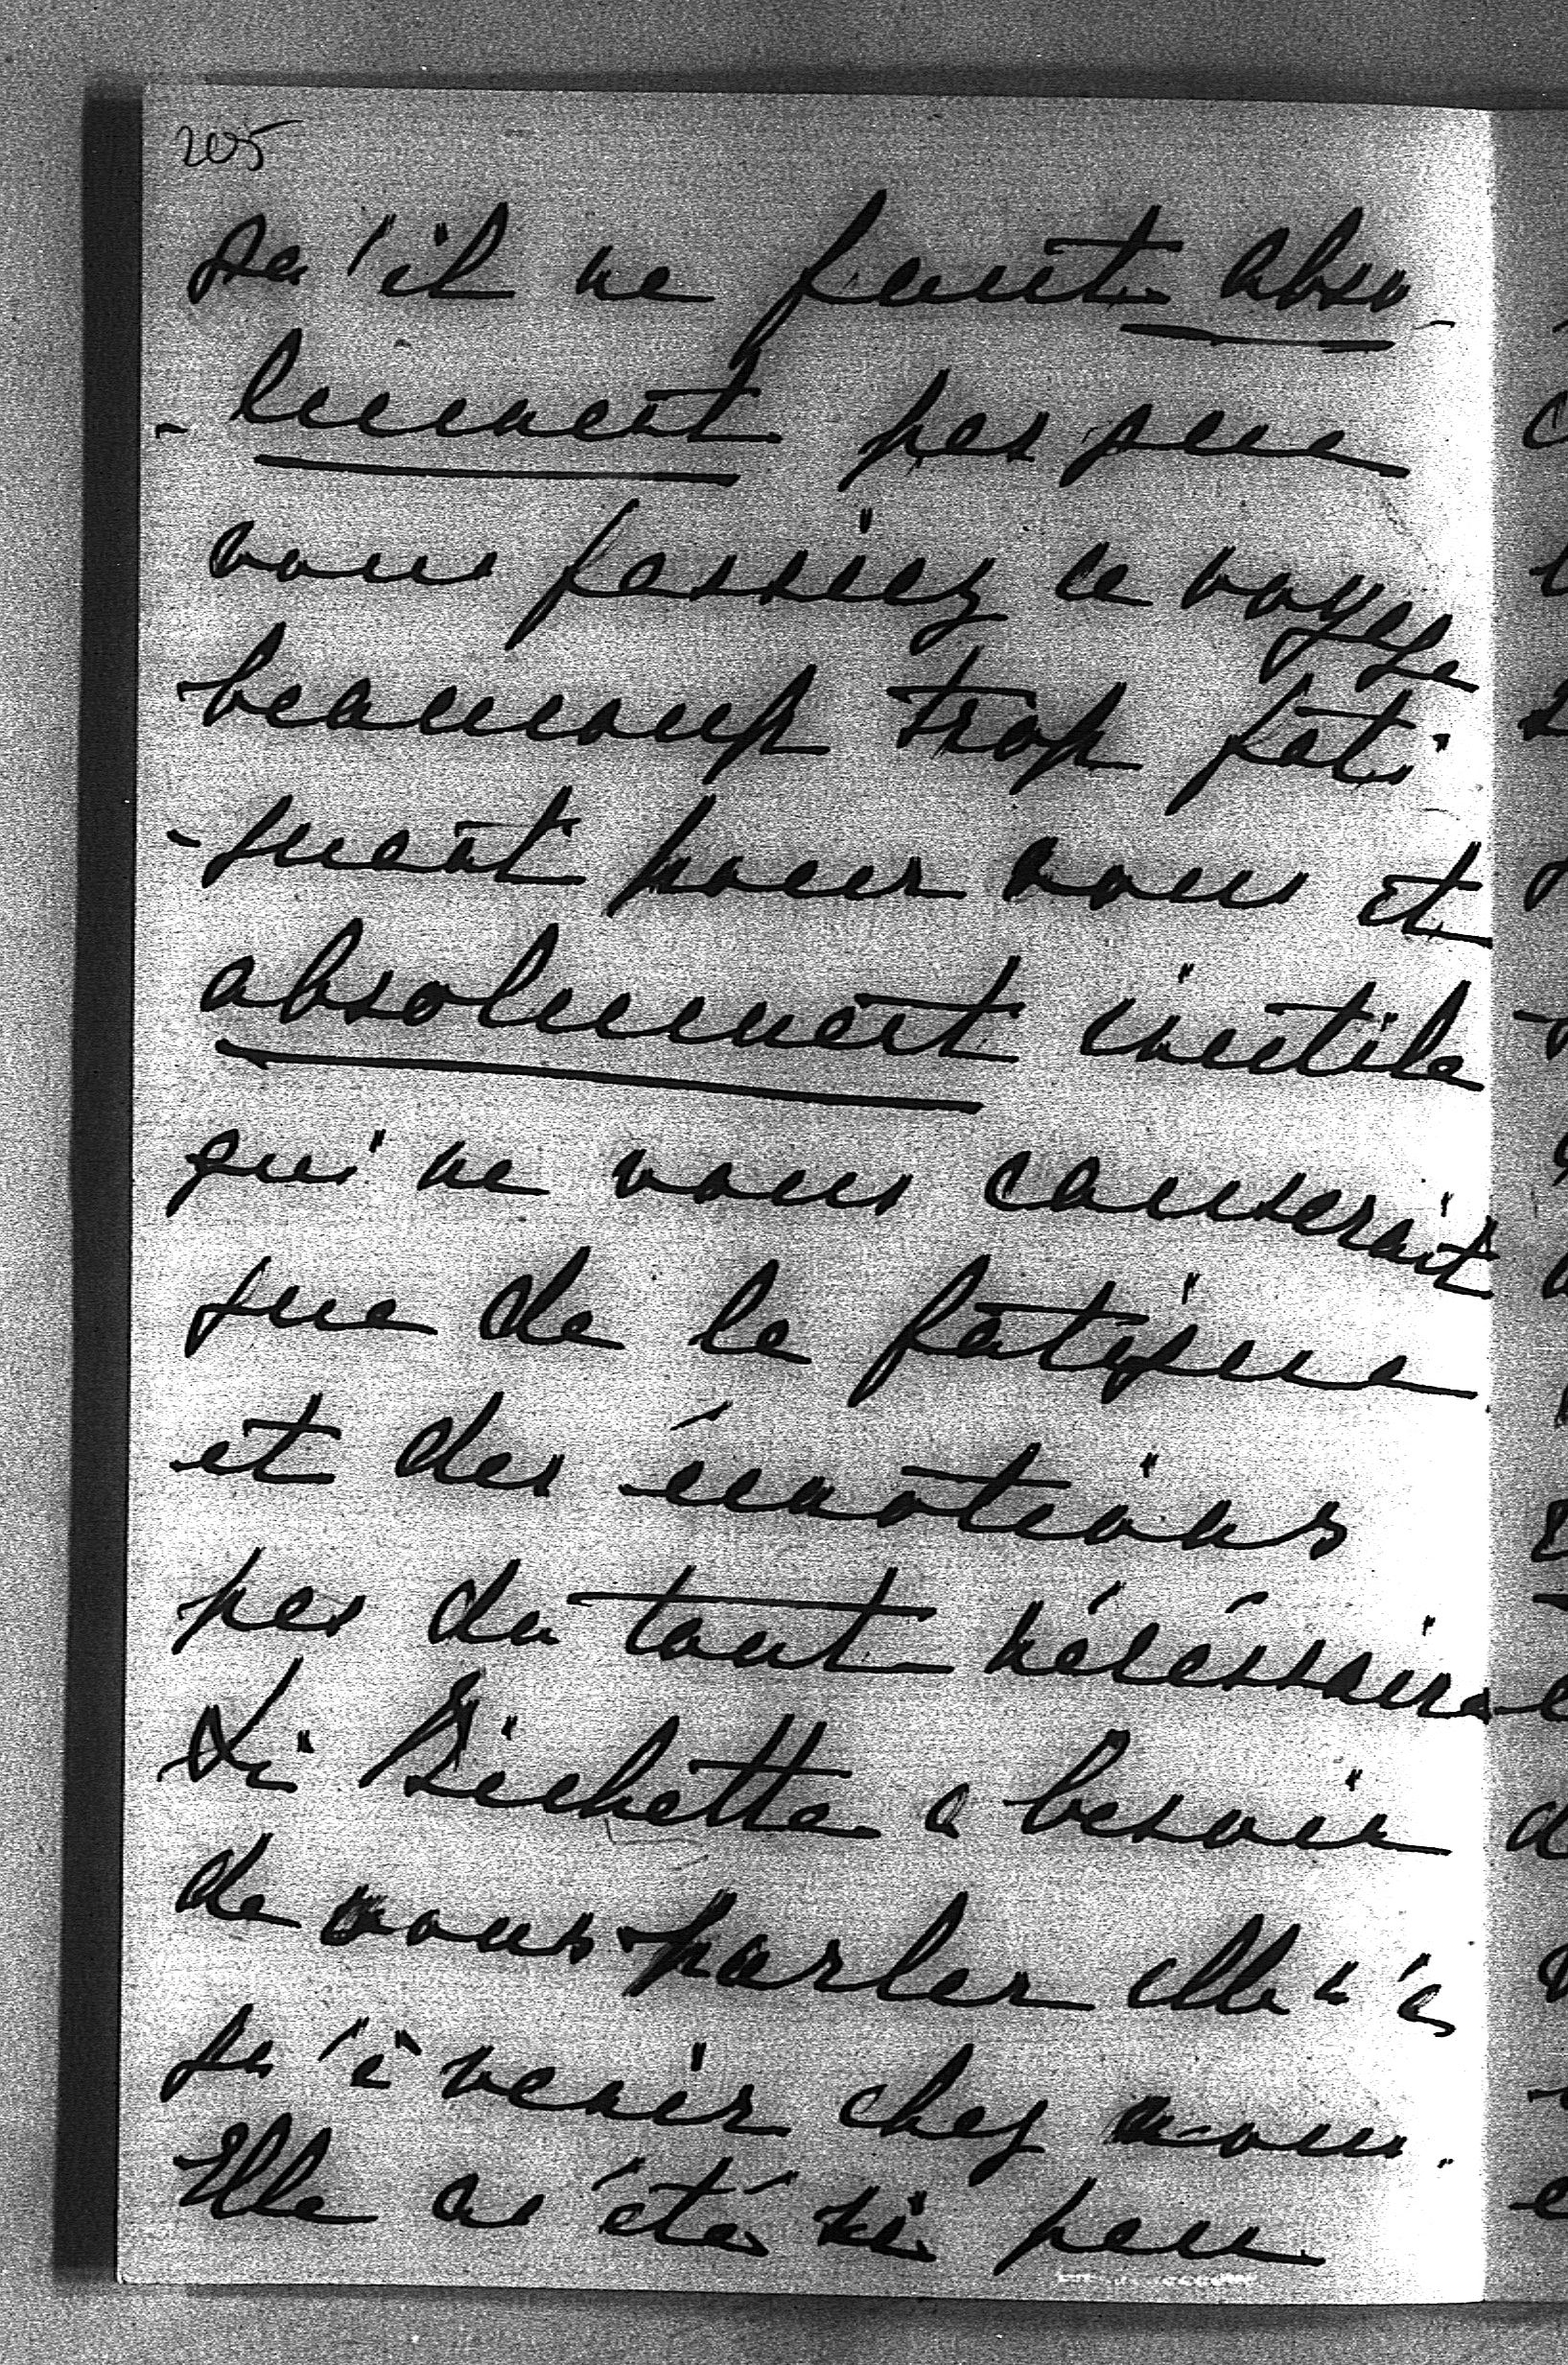 205
qu'il ne faut abso-
-lument pas que
vous fassiez ce voyage
beaucoup trop fati-
-guant pour vous et
absolument inutile
qui ne vous causerait
que de la fatigue
et des émotions
pas du tout nécéssaires
Si Bichette a besoin
de vous parler elle n'a
qu'à venir chez vous.
Elle a été si peu